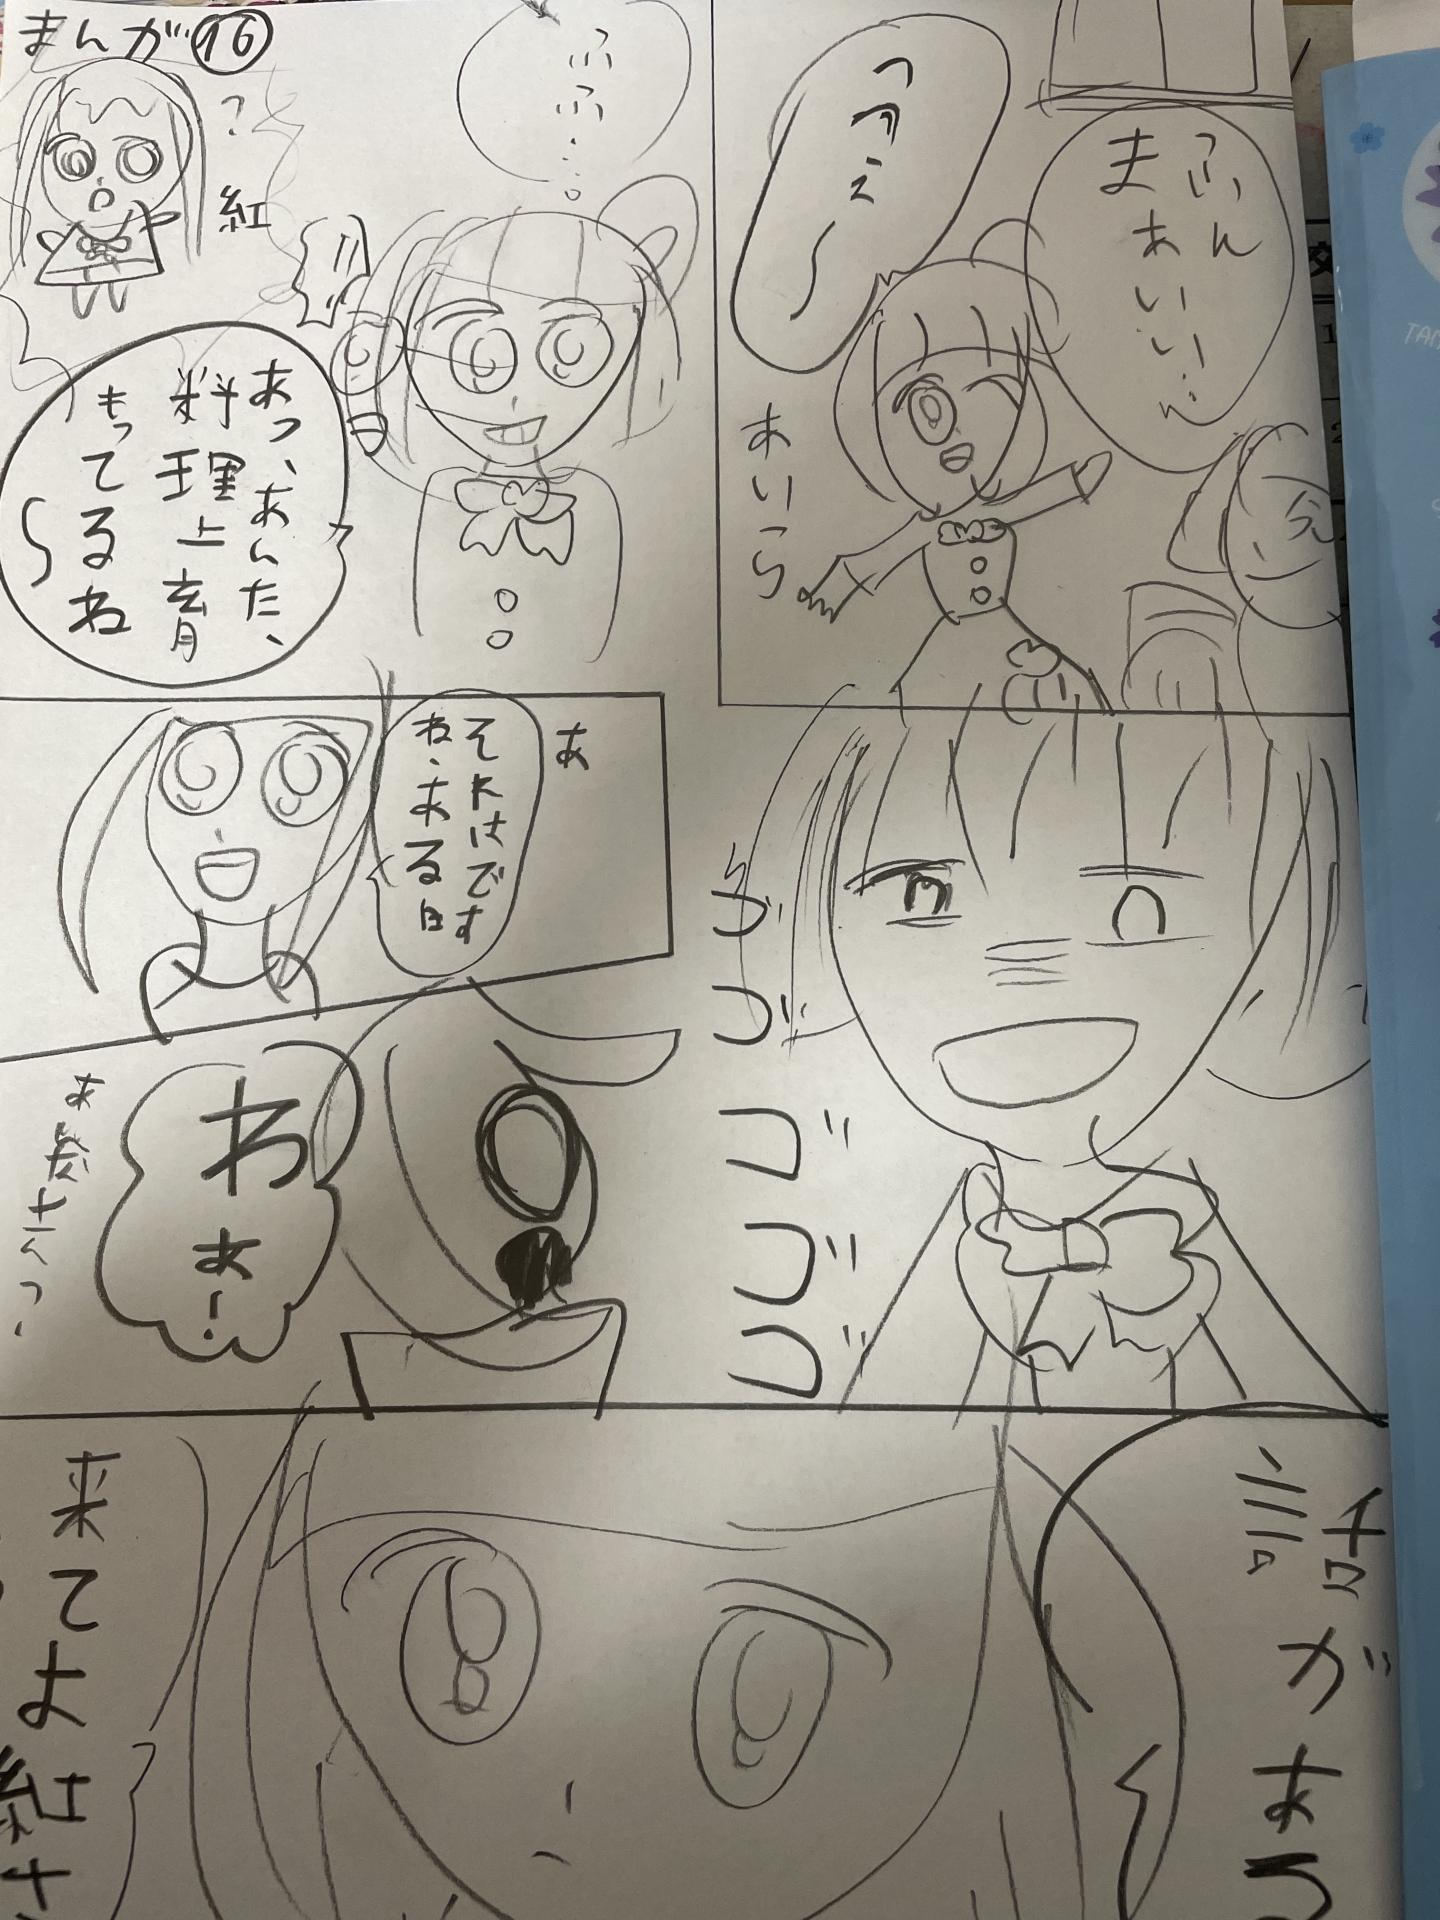 まんが⑯
ふーん
まあいい…
つづえ〜
あいこら
ふふ…
?
紅
!!
あっ、あんた、
料理上育
もってるね
〜
ゴゴゴゴゴ
あ
それはです
ね、ある日
わあ!
話がある
来てよ紅さ